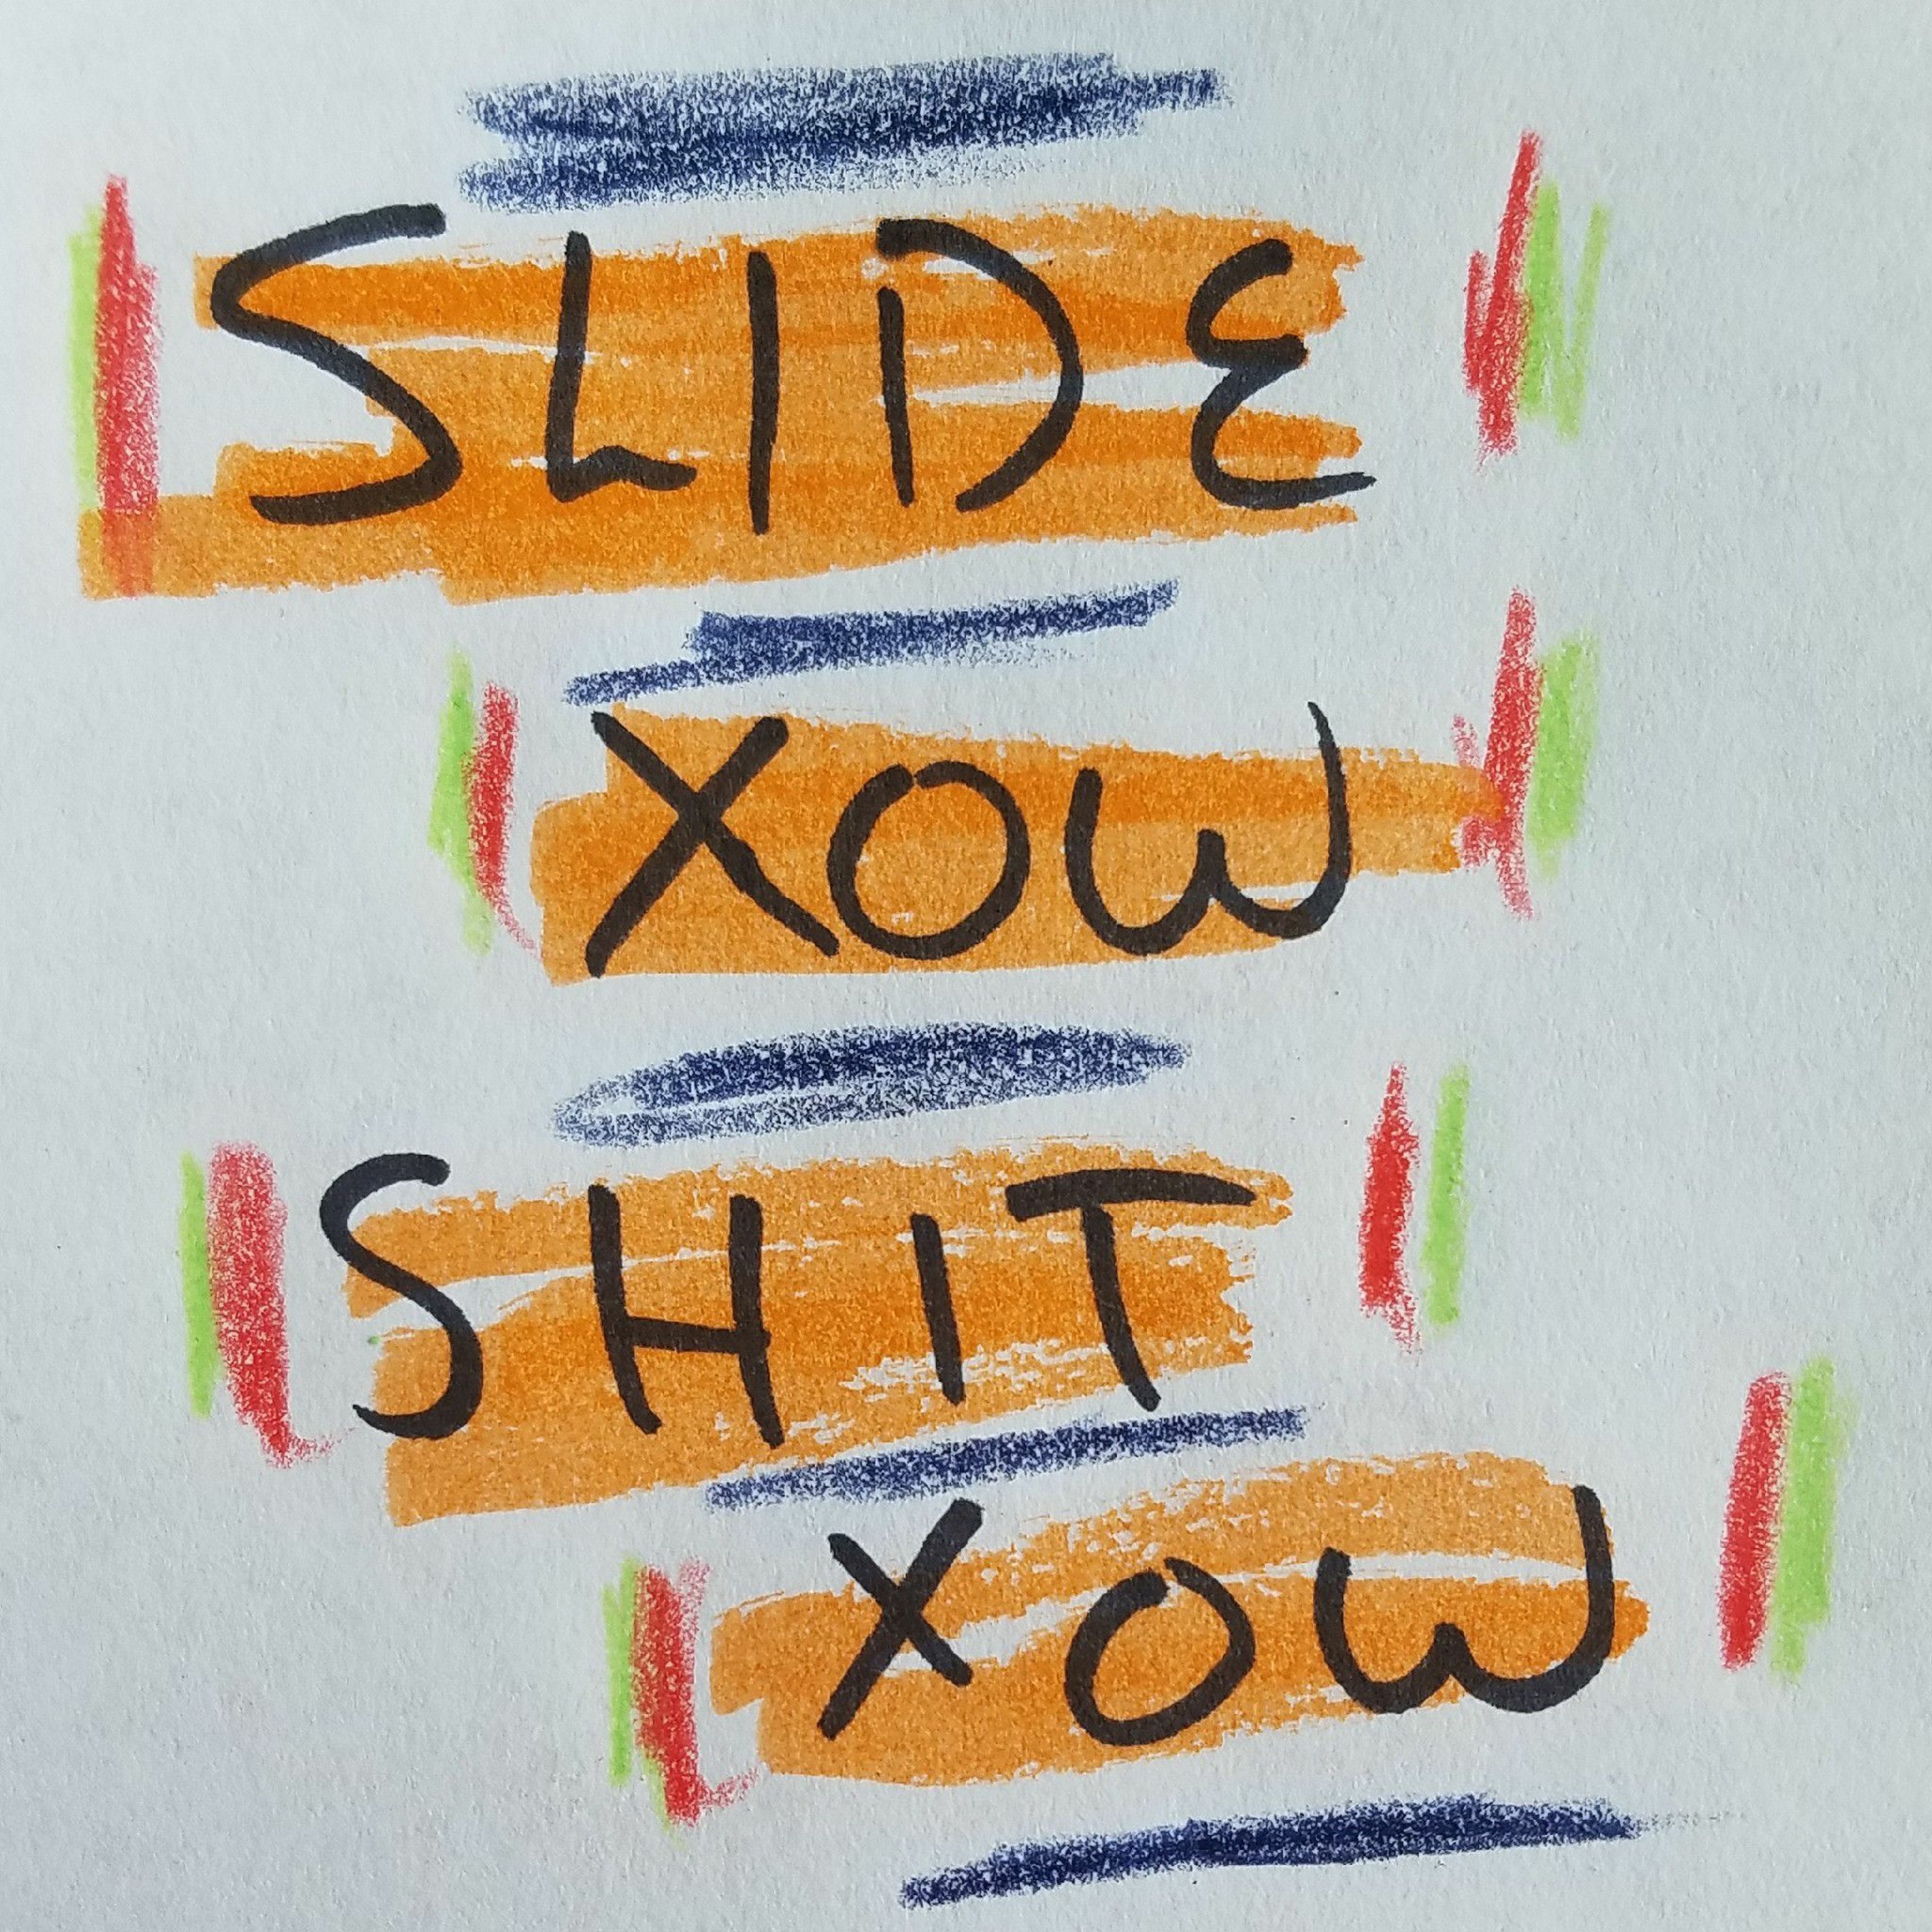 SLIDE
XOW
SHIT
XOW